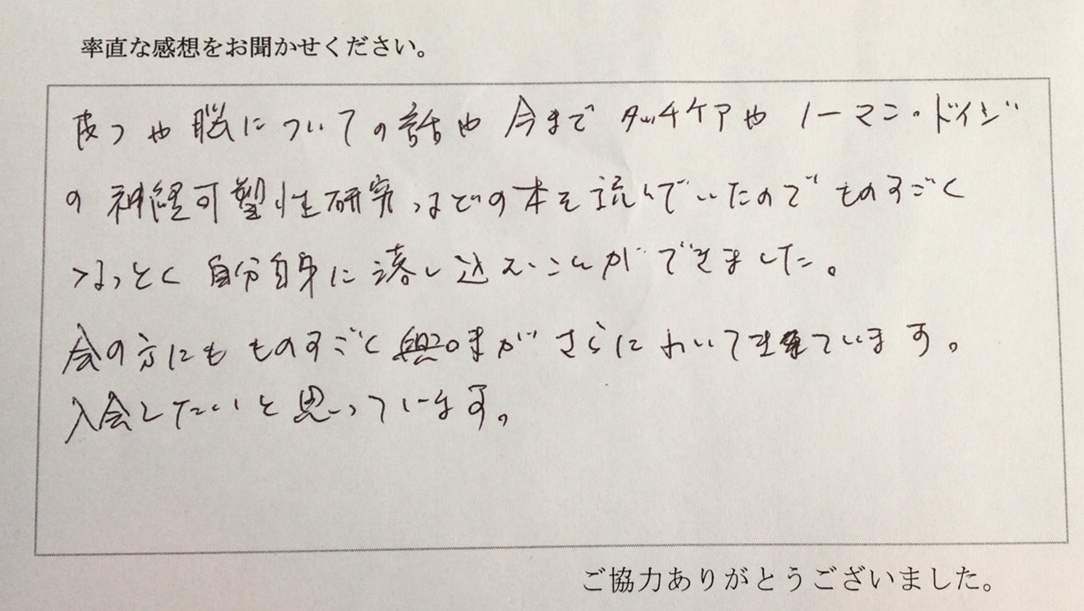 率直な感想をお聞かせください。
皮フや脳についての話や今までタッチケアやノーマン・ドイジ
の神経可塑性研究などの本を読んでいたのでものすごく
なっとく自分自身に落し込むことができました。
会の方にもものすごく興味がさらにわいて来ています。
入会したいと思っています。
ご協力ありがとうございました。